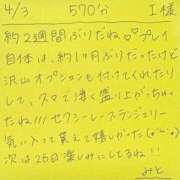 4/3 570分 I様
約2週間ぶりだね♡♡プレイ
自体は、約1ヶ月ぶりだったけど
沢山オプションも付けてくれたり
して、スマで凄く盛り上がっちゃっ
たね!!!セクシーレースランジェリー
気に入って貰えて嬉しかった(o^^o)
次は25日楽しみにしてるね!!
みと